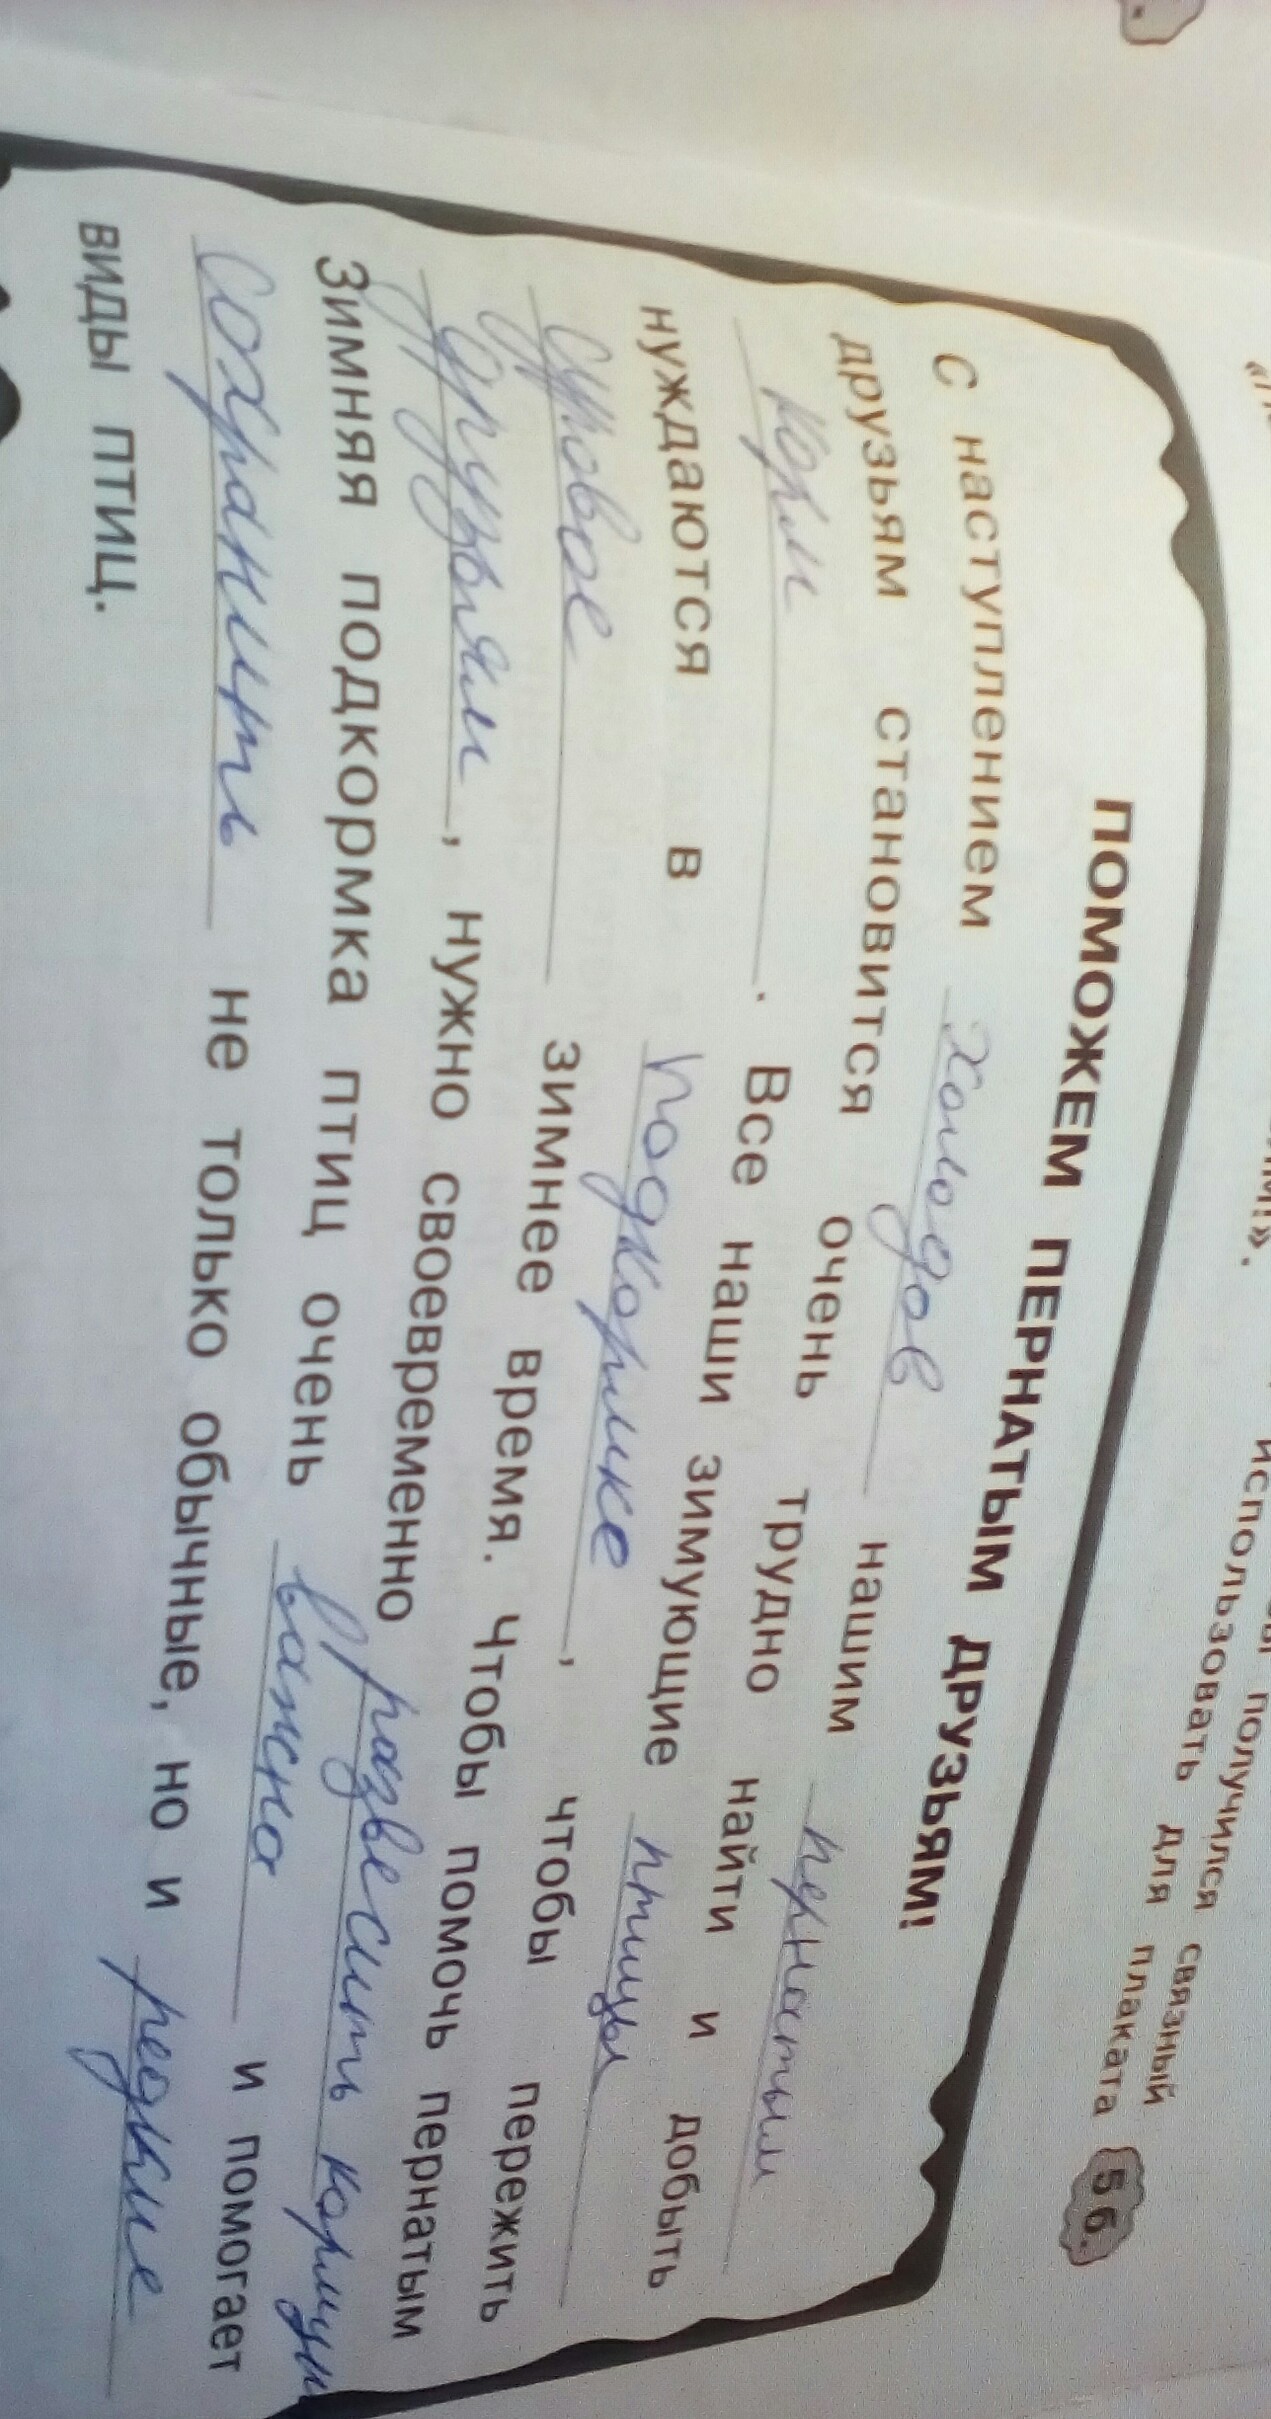 получился связный
использовать для плаката 5 б.
ПОМОЖЕМ ПЕРНАТЫМ ДРУЗЬЯМ!
С наступлением холодов нашим пернатым
друзьям становится очень трудно найти и добыть
корм. Все наши зимующие птицы
нуждаются в подкормке, чтобы пережить
суровое зимнее время. Чтобы помочь пернатым
друзьям, нужно своевременно развесить кормушки
Зимняя подкормка птиц очень важна и помогает
сохранить не только обычные, но и редкие
виды птиц.